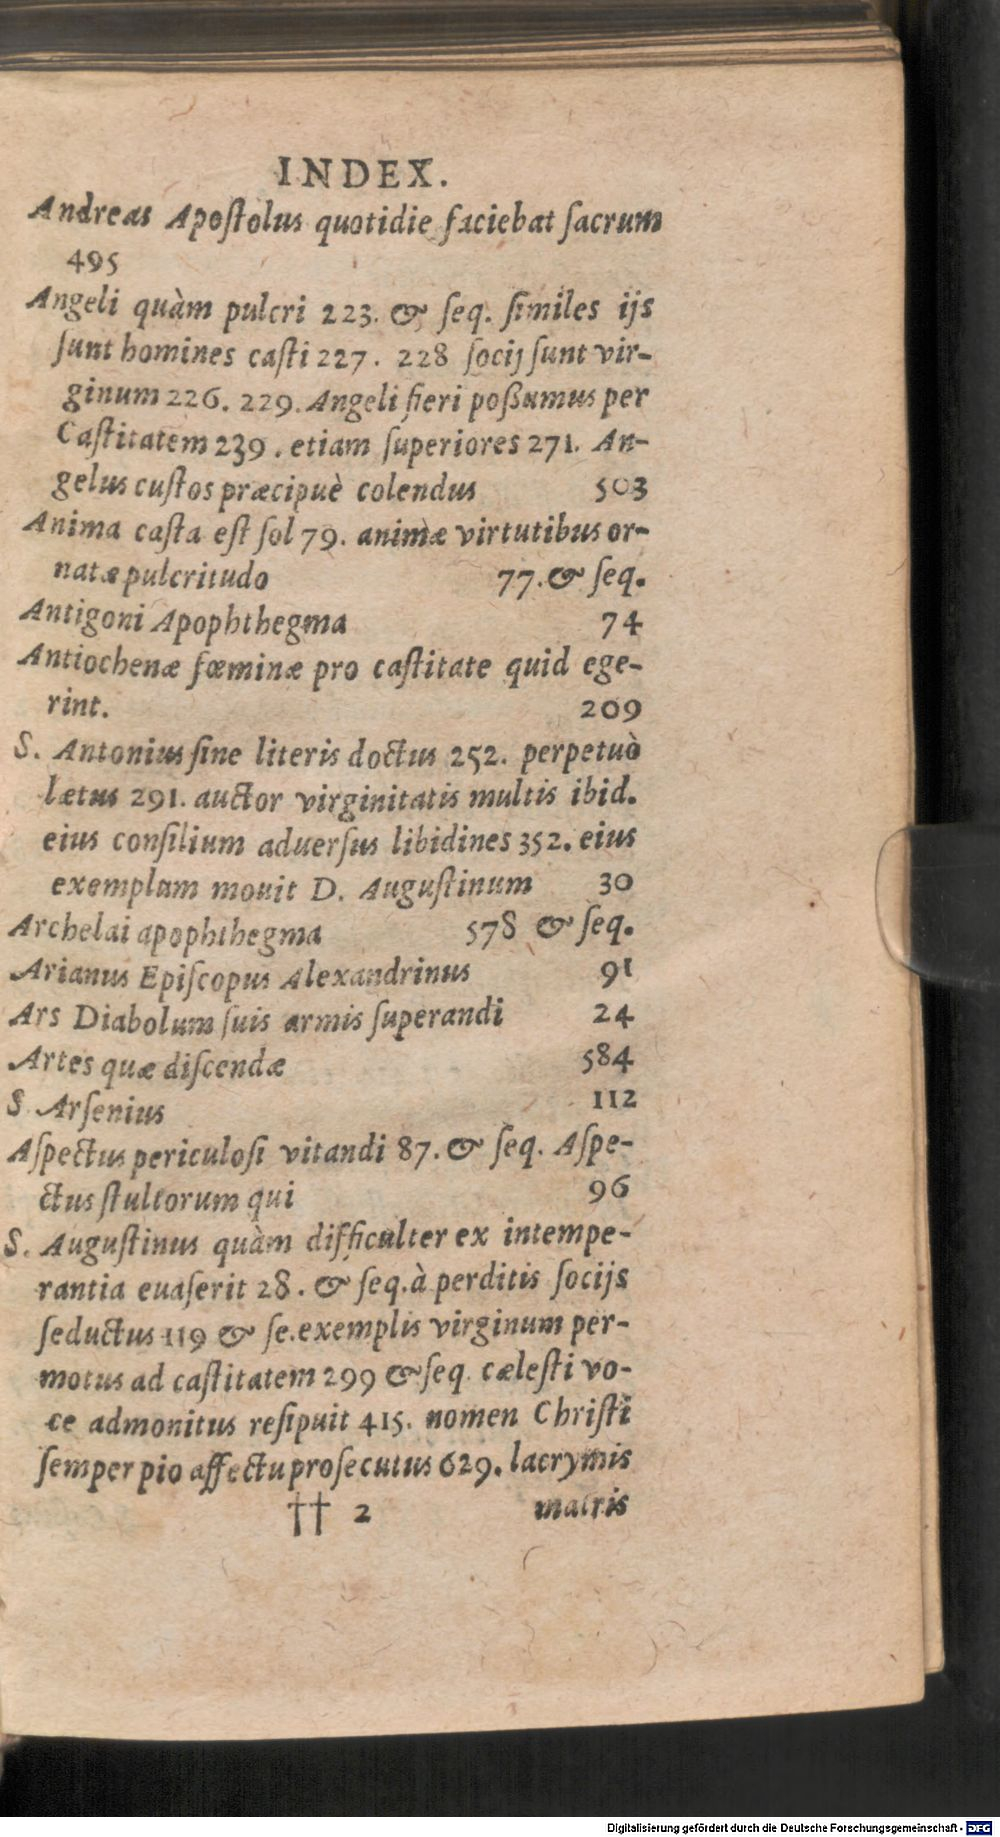 INDEX.
Andreas Apoſtolus quotidie faciebat ſacrum
495
Angeli quàm pulcri 223. & ſeq. ſimiles ijs
ſunt homines caſti 227. 228 ſocij ſunt vir-
ginum 226. 229. Angeli fieri poßumus per
Caſtitatem 239. etiam ſuperiores 271. An-
gelus cuſtos præcipuè colendus 503
Anima caſta eſt ſol 79. animæ virtutibus or-
natæ pulcritudo 77. & ſeq.
Antigoni Apophthegma 74
Antiochenæ fœminæ pro caſtitate quid ege-
rint. 209
S. Antonius ſine literis doctus 252. perpetuò
lætus 291. auctor virginitatis multis ibid.
eius conſilium aduerſus libidines 352. eius
exemplum mouit D. Auguſtinum 30
Archelai apophthegma 578 & ſeq.
Arianus Epiſcopus Alexandrinus 91
Ars Diabolum ſuis armis ſuperandi 24
Artes quæ diſcendæ 584
S. Arſenius 112
Aſpectus periculoſi vitandi 87. & ſeq. Aſpe-
ctus ſtultorum qui 96
S. Auguſtinus quàm difficulter ex intempe-
rantia euaſerit 28. & ſeq. à perditis ſocijs
ſeductus 119 & ſe. exemplis virginum per-
motus ad caſtitatem 299 & ſeq. cæleſti vo-
ce admonitus reſipuit 415. nomen Chriſti
ſemper pio affectu proſecutus 629. lacrymis
†† 2 matris
Digitalisierung gefördert durch die Deutsche Forschungsgemeinschaft - DFG